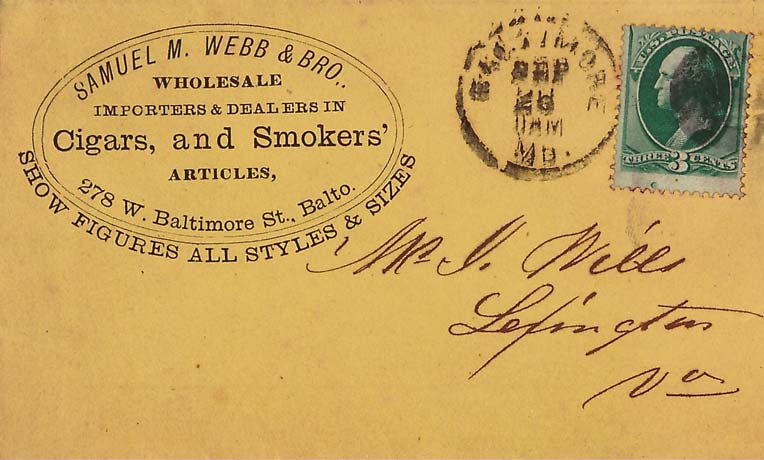 SAMUEL M. WEBB & BRO.,
WHOLESALE
IMPORTERS & DEALERS IN
Cigars, and Smokers'
ARTICLES,
278 W. Baltimore St., Balto.
SHOW FIGURES ALL STYLES & SIZES
BALTIMORE
SEP
MD.
U.S. POSTAGE
THREE 3 CENTS
Mr. J. Wills
Lexington
Va